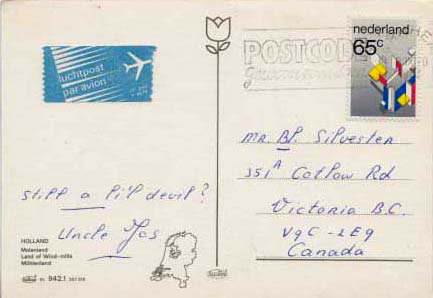 luchtpost
par avion
nederland
65c
POSTCODE
Mr. Bl. Silvester
351 A Catlow Rd
Victoria B.C.
V9C-2E9
Canada
still a li'l devil?
Uncle Jos
HOLLAND
Molenland
Land of Wind-mills
Mühlenland
942.1